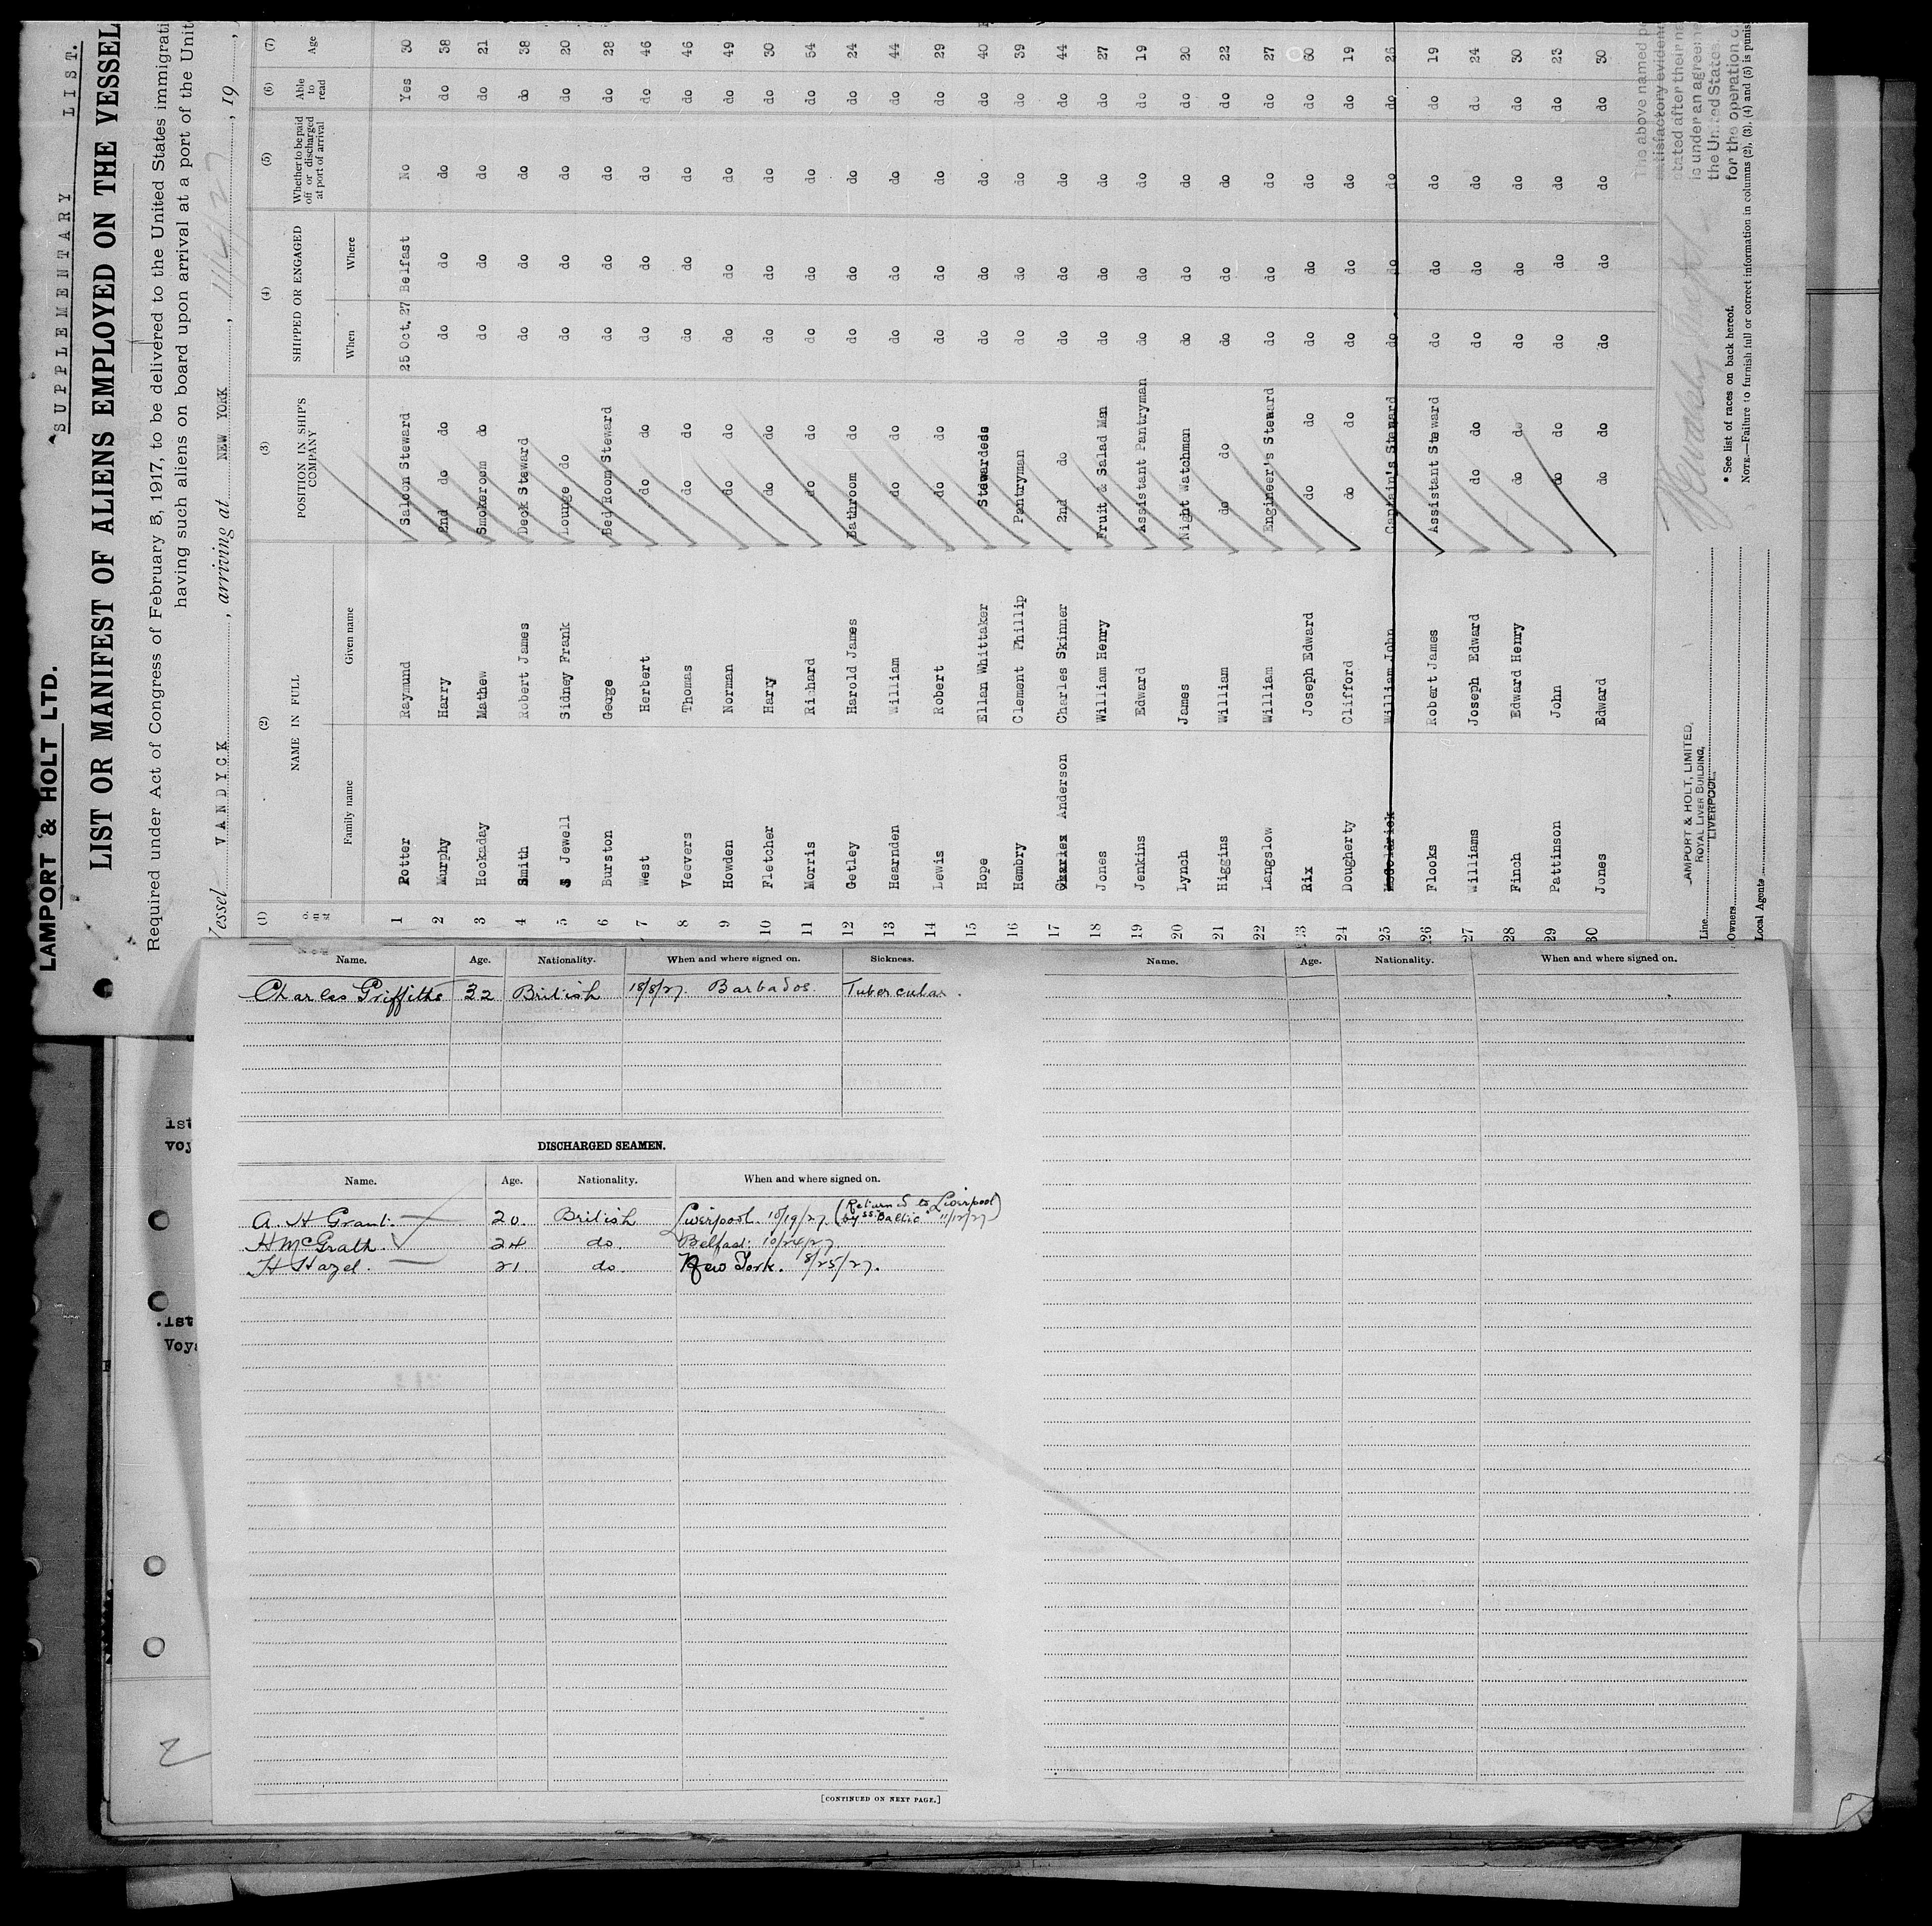 LAMPORT & HOLT LTD.
SUPPLEMENTARY LIST.
LIST OR MANIFEST OF ALIENS EMPLOYED ON THE VESSEL
Required under Act of Congress of February 5, 1917, to be delivered to the United States immigrati
having such aliens on board upon arrival at a port of the Unit
Vessel VANDYCK, arriving at NEW YORK, 11/4/27, 19
(1) (2) (3) (4) (5) (6) (7)
NAME IN FULL POSITION IN SHIP'S COMPANY SHIPPED OR ENGAGED Whether to be paid off or discharged at port of arrival Able to read Age
Family name Given name When Where
1 Potter Raymund Saloon Steward 25 Oct. 27 Belfast No Yes 30
2 Murphy Harry 2nd do do do do do do 38
3 Hockaday Mathew Smokeroom do do do do do 21
4 Smith Robert James Deck Steward do do do do 38
5 S Jewell Sidney Frank Lounge do do do do do 20
6 Burston George Bed Room Steward do do do do 28
7 West Herbert do do do do do do 46
8 Veevers Thomas do do do do do do 46
9 Howden Norman do do do do do do 49
10 Fletcher Harry do do do do do do 30
11 Morris Richard do do do do do do 54
12 Getley Harold James Bathroom do do do do do 24
13 Hearnden William do do do do do do 44
14 Lewis Robert do do do do do do 29
15 Hope Ellan Whittaker Stewardess do do do do 40
16 Hembry Clement Phillip Pantryman do do do do 39
17 Charles Anderson Charles Skinner 2nd do do do do do 44
18 Jones William Henry Fruit & Salad Man do do do do 27
19 Jenkins Edward Assistant Pantryman do do do do 19
20 Lynch James Night Watchman do do do do 20
21 Higgins William do do do do do do 22
22 Langslow William Engineer's Steward do do do do 27
23 Rix Joseph Edward do do do do do do 60
24 Dougherty Clifford do do do do do do 19
25 McGoldrick William John Captain's Steward do do do do 26
26 Flooks Robert James Assistant Steward do do do do 19
27 Williams Joseph Edward do do do do do do 24
28 Finch Edward Henry do do do do do do 30
29 Pattinson John do do do do do do 23
30 Jones Edward do do do do do do 30
The above named pe
satisfactory evidenc
stated after their na
is under an agreeme
the United States.
for the operation o
LAMPORT & HOLT, LIMITED,
ROYAL LIVER BUILDING,
LIVERPOOL.
Line
Owners
Local Agents
* See list of races on back hereof.
NOTE.—Failure to furnish full or correct information in columns (2), (3), (4) and (5) is punis
Name. Age. Nationality. When and where signed on. Sickness.
Charles Griffiths 32 British 18/8/27. Barbados. Tubercular.
DISCHARGED SEAMEN.
Name. Age. Nationality. When and where signed on.
A. H Grant. 20. British Liverpool. 10/19/27 (Returned to Liverpool
by ss "Baltic" 11/12/27)
H McGrath. 24 do. Belfast. 10/24/27
H Hazel. 21. do. New York. 8/25/27.
[CONTINUED ON NEXT PAGE.]
Name. Age. Nationality. When and where signed on.
1st
Voy
.1st
Voya
2